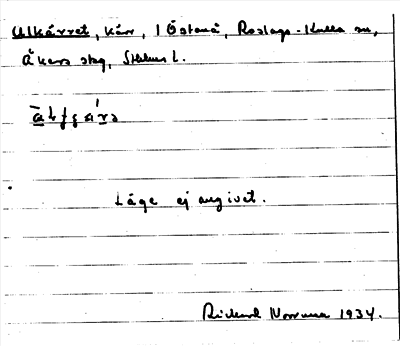 Ulkärret, kärr, i Östanå, Roslags-Kulla sn,
Åkers skg, Sthlms l.
Läge ej angivet.
Rickard Norman 1934.